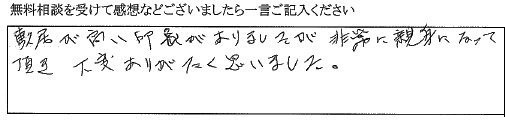 無料相談を受けて感想などございましたら一言ご記入ください
敷居が高い印象がありましたが 非常に親身になって
頂き 大変ありがたく思いました。